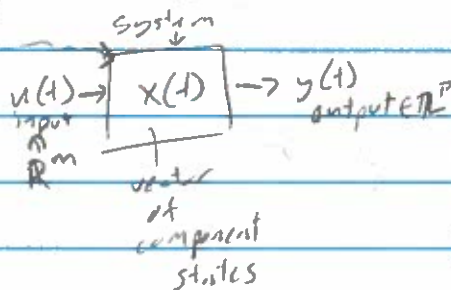 system
u(t) → x(t) → y(t)
input
output ∈ ℝᵖ
∩
ℝᵐ
vector
of
component
states